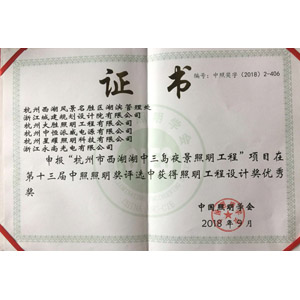 编号：中照奖字（2018）2-406
证 书
杭州西湖风景名胜区湖滨管理处
浙江城建规划设计院有限公司
杭州大胜照明工程有限公司
杭州中恒派威电源有限公司
杭州星耀照明科技有限公司
浙江永麒光电有限公司
申报“杭州市西湖湖中三岛夜景照明工程”项目在
第十三届中照照明奖评选中获得照明工程设计奖优秀
奖
中国照明学会
2018 年 9 月